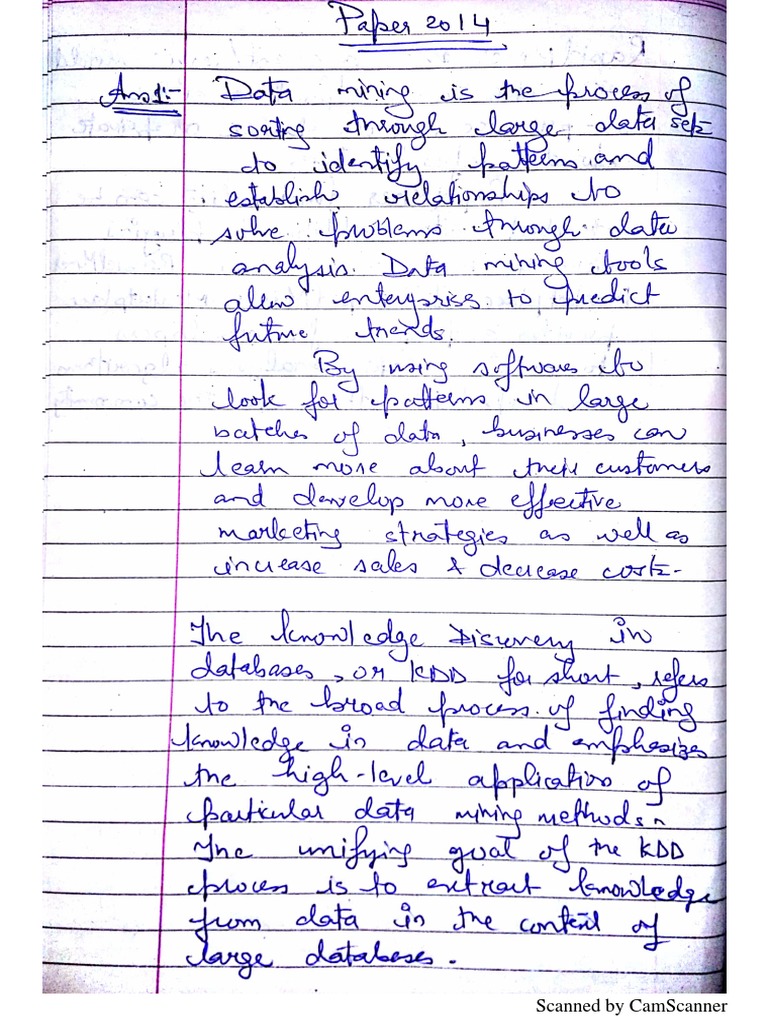 Paper 2014
1
Ans1:- Data mining is the process of
sorting through large data sets
to identify patterns and
establish relationships to
solve problems through data
analysis. Data mining tools
allow enterprises to predict
future trends.
By using software to
look for patterns in large
batches of data, businesses can
learn more about their customers
and develop more effective
marketing strategies as well as
increase sales & decrease costs.
The knowledge Discovery in
databases, or KDD for short, refers
to the broad process of finding
knowledge in data and emphasizes
the high-level application of
particular data mining methods.
The unifying goal of the KDD
process is to extract knowledge
from data in the context of
large databases.
Scanned by CamScanner